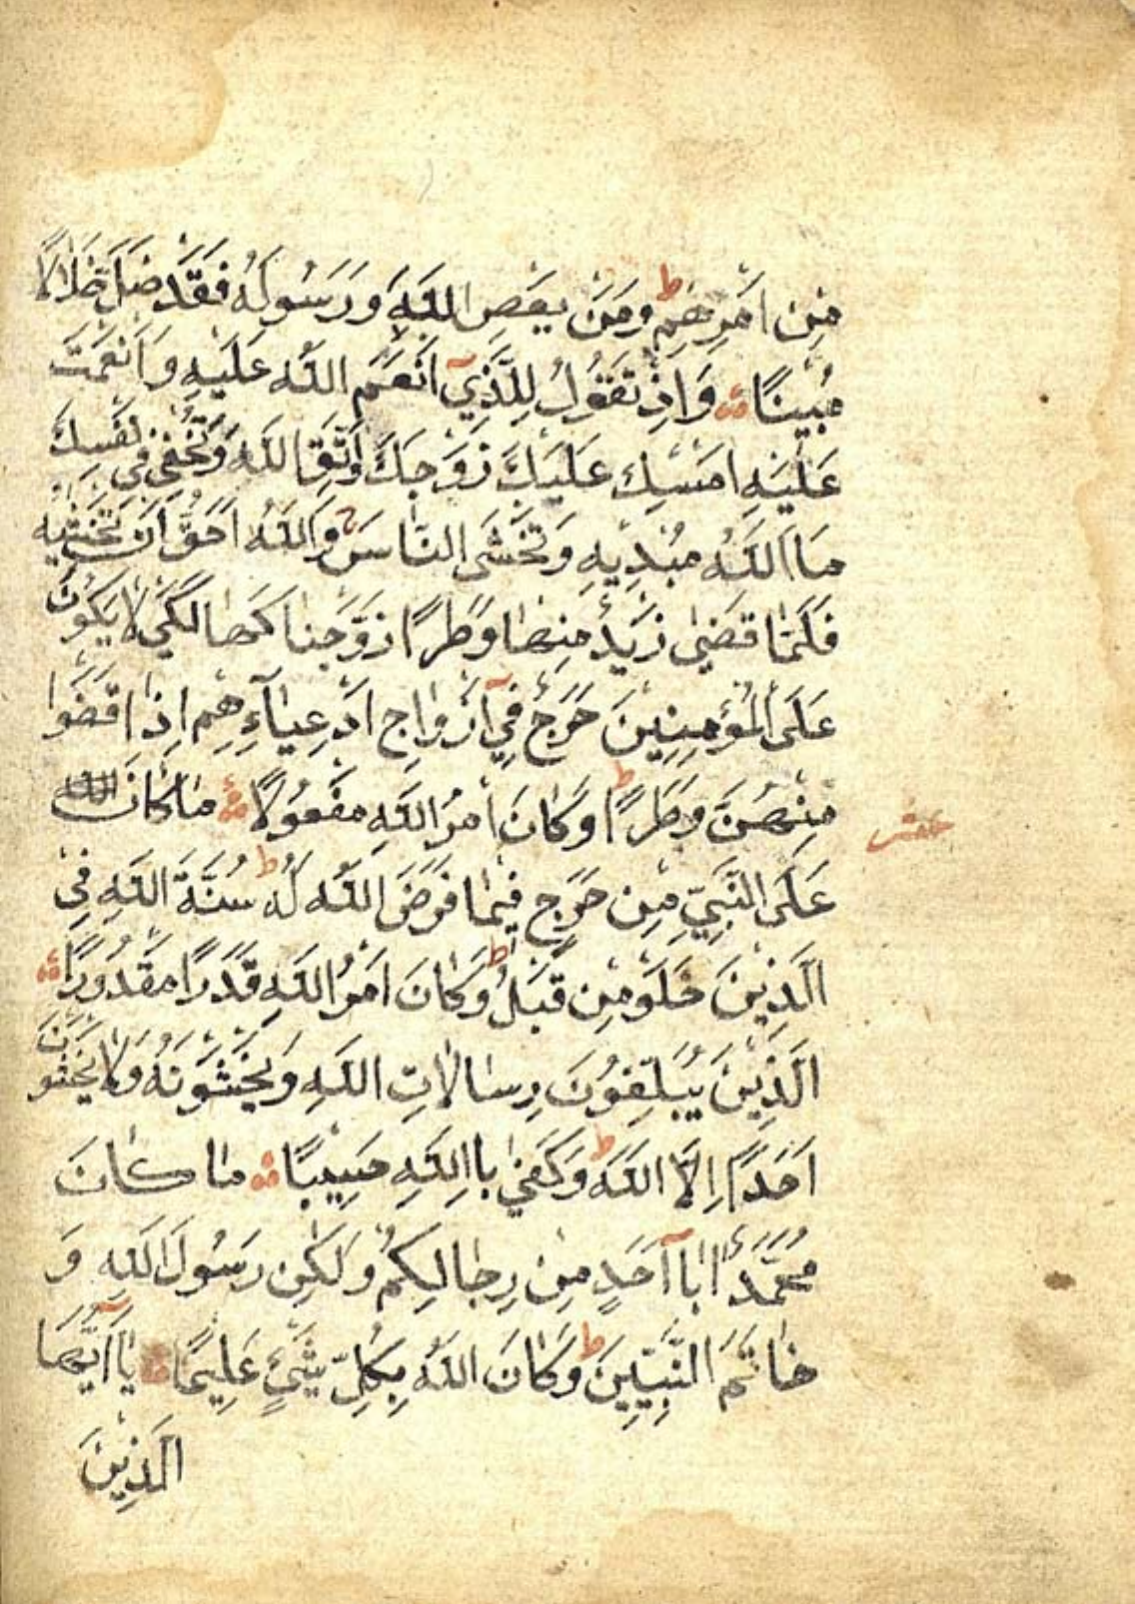 مِنْ اَمْرِهِمْ ط وَمَنْ يَعْصِ اللّٰهَ وَرَسُولَهُ فَقَدْ ضَلَّ ضَلَالًا
مُبِينًا وَاِذْ تَقُولُ لِلَّذِيٓ اَنْعَمَ اللّٰهُ عَلَيْهِ وَاَنْعَمْتَ
عَلَيْهِ اَمْسِكْ عَلَيْكَ زَوْجَكَ وَاتَّقِ اللّٰهَ وَتُخْفِي فِي نَفْسِكَ
مَا اللّٰهُ مُبْدِيهِ وَتَخْشَى النَّاسَ ج وَاللّٰهُ اَحَقُّ اَنْ تَخْشٰيهُ
فَلَمَّا قَضٰى زَيْدٌ مِنْهَا وَطَرًا زَوَّجْنَاكَهَا لِكَيْ لَا يَكُونَ
عَلَى الْمُؤْمِنِينَ حَرَجٌ فِيٓ اَزْوَاجِ اَدْعِيَآءِهِمْ اِذَا قَضَوْا
مِنْهُنَّ وَطَرًا ط وَكَانَ اَمْرُ اللّٰهِ مَفْعُولًا مَا كَانَ
عشر
عَلَى النَّبِيِّ مِنْ حَرَجٍ فِيمَا فَرَضَ اللّٰهُ لَهُ ط سُنَّةَ اللّٰهِ فِي
الَّذِينَ خَلَوْ مِنْ قَبْلُ ط وَكَانَ اَمْرُ اللّٰهِ قَدَرًا مَقْدُورًا
الَّذِينَ يُبَلِّغُونَ رِسَالَاتِ اللّٰهِ وَيَخْشَوْنَهُ وَلَا يَخْشَوْنَ
اَحَدًا اِلَّا اللّٰهَ ط وَكَفٰى بِااللّٰهِ حَسِيبًا مَا كَانَ
مُحَمَّدٌ اَبَآ اَحَدٍ مِنْ رِجَالِكُمْ وَلٰكِنْ رَسُولَ اللّٰهِ وَ
خَاتَمَ النَّبِيِّينَ ط وَكَانَ اللّٰهُ بِكُلِّ شَيْءٍ عَلِيمًا يَآ اَيُّهَا
الَّذِينَ